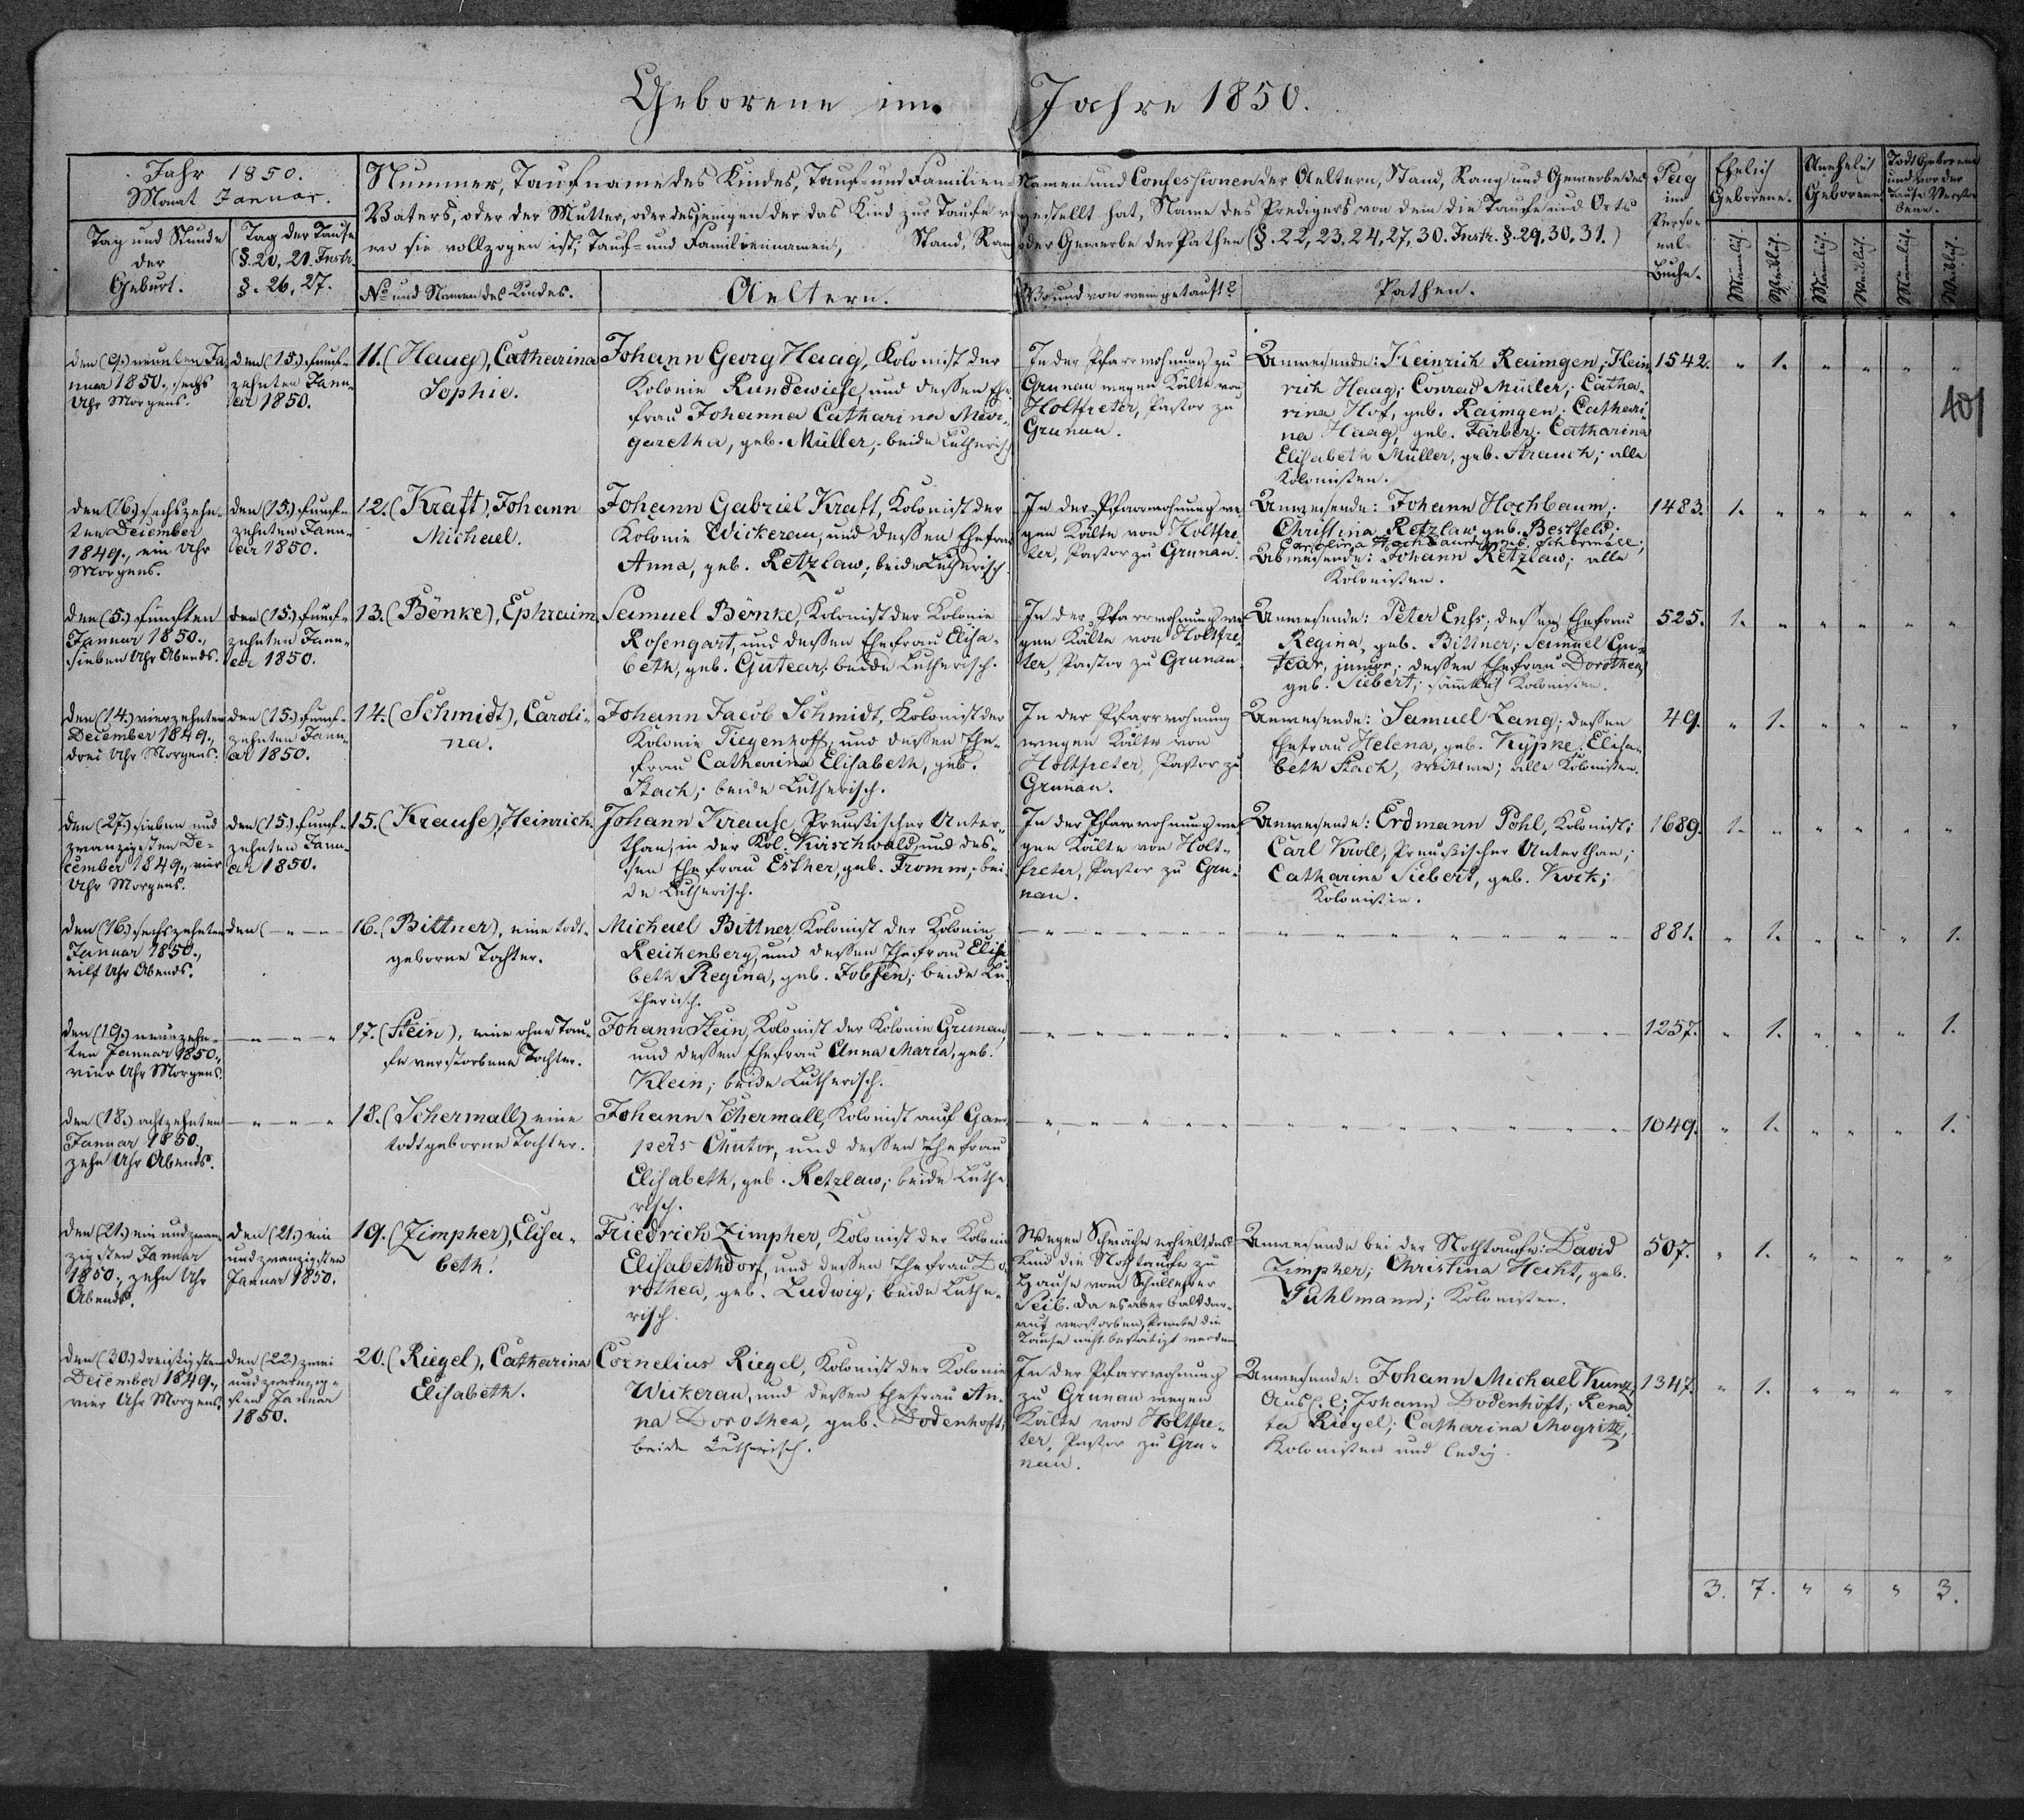 Geborene im Jahre 1850.
Jahr 1850.
Monat Januar.
Tag und Stunde
der
Geburt.
Tag der Taufe
(§. 20, 21. Instr.
§. 26, 27.
Nummer, Taufname des Kindes, Tauf- und Familien-Namen und Confessionen der Aeltern, Stand, Rang und Gewerbe des
Vaters, oder der Mutter, oder desjenigen der das Kind zur Taufe gestellt hat, Name des Predigers von dem die Taufe und Orts
wo sie vollzogen ist, Tauf- und Familiennamen, Stand, Rang oder Gewerbe der Pathen (§. 22, 23, 24, 27, 30. Instr. §. 29, 30, 31.)
No und Namen des Kindes.
Aeltern.
Wo und von wem getauft?
Pathen.
Pag
im
Perso-
nal-
Buche.
Ehelich
Geborene.
Unehelich
Geborene
Todt Geborene
und vor der
Taufe Verstor-
bene.
Männlich.
Weiblich.
Männlich.
Weiblich.
Männlich.
Weiblich.
den (9.) neunten Ja-
nuar 1850., sechs
Uhr Morgens.
den (15.) funf-
zehnten Janu-
ar 1850.
11. (Haag), Catharina
Sophie.
Johann Georg Haag, Kolonist der
Kolonie Rundewiese, und dessen Ehe-
frau Johanna Catharina Mar-
garetha, geb. Müller; beide Lutherisch
In der Pfarrwohnung zu
Grunau wegen Kälte von
Holtfreter, Pastor zu
Grunau.
Anwesende: Heinrich Raimgen; Hein-
rich Haag; Conrad Müller; Catha-
rina Hof, geb. Raimgen; Cathari-
na Haag, geb. Färber; Catharina
Elisabeth Müller, geb. Strauch; alle
Kolonisten.
1542. " 1. " " " "
401
den (16.) sechszehn-
ten December
1849., ein Uhr
Morgens.
den (15.) funf-
zehnten Janu-
ar 1850.
12. (Kraft), Johann
Michael.
Johann Gabriel Kraft, Kolonist der
Kolonie Wickerau, und dessen Ehefrau
Anna, geb. Retzlaw; beide Lutherisch.
In der Pfarrwohnung we-
gen Kälte von Holtfre-
ter, Pastor zu Grunau.
Anwesende: Johann Hochbaum;
Christina Retzlaw geb. Bestfeld;
Carolina Hochbaum, geb.
Abwesende: Johann Retzlaw; alle
Kolonisten.
1483. 1. " " " " "
den (5.) funften
Januar 1850.,
sieben Uhr Abends.
den (15.) funf-
zehnten Janu-
ar 1850.
13. (Bönke), Ephraim
Samuel Bönke, Kolonist der Kolonie
Rosengart, und dessen Ehefrau Elisa-
beth, geb. Gutear; beide Lutherisch.
In der Pfarrwohnung we-
gen Kälte von Holtfre-
ter, Pastor zu Grunau
Anwesende: Peter Enss; dessen Ehefrau
Regina, geb. Bittner; Samuel Gu-
tear, junior; dessen Ehefrau Dorothea,
geb. Siebert; sämmtlich Kolonisten.
525. 1. " " " " "
den (14.) vierzehnten
December 1849.,
drei Uhr Morgens.
den (15.) funf-
zehnten Janu-
ar 1850.
14. (Schmidt), Caroli-
na.
Johann Jacob Schmidt, Kolonist der
Kolonie Tiegenhoff, und dessen Ehe-
frau Catharina Elisabeth, geb.
Stach; beide Lutherisch.
In der Pfarrwohnung
wegen Kälte von
Holtfreter, Pastor zu
Grunau.
Anwesende: Samuel Lang; dessen
Ehefrau Helena, geb. Kypke; Elisa-
beth Stach, Wittwe; alle Kolonisten.
49. " 1. " " " "
den (27.) sieben und
zwanzigsten De-
cember 1849., vier
Uhr Morgens.
den (15.) funf-
zehnten Janu-
ar 1850.
15. (Krause), Heinrich.
Johann Krause, Preußischer Unter-
than, in der Kol. Kirschwald, und des-
sen Ehefrau Esther, geb. Fromm; bei-
de Lutherisch.
In der Pfarrwohnung we-
gen Kälte von Holt-
freter, Pastor zu Gru-
nau.
Anwesende: Erdmann Pohl, Kolonist;
Carl Kroll, Preußischer Unterthan;
Catharina Siebert, geb. Kock;
Kolonistin.
1689. 1. " " " " "
den (16.) sechszehnten
Januar 1850.,
eilf Uhr Abends.
den (— " — "
16. (Bittner), eine todt-
geborne Tochter.
Michael Bittner, Kolonist der Kolonie
Reichenberg, und dessen Ehefrau Elisa-
beth Regina, geb. Jobsen; beide Lu-
therisch.
881. " 1. " " " 1.
den (19.) neunzehn-
ten Januar 1850.,
vier Uhr Morgens.
17. (Stein), eine ohne Tau-
fe verstorbene Tochter.
Johann Stein, Kolonist der Kolonie Grunau,
und dessen Ehefrau Anna Maria, geb.
Klein; beide Lutherisch.
1257. " 1. " " " 1.
den (18.) achtzehnten
Januar 1850.,
zehn Uhr Abends.
18. (Schermall) eine
todtgeborne Tochter.
Johann Schermall, Kolonist auf Gam-
pers Chutor, und dessen Ehefrau
Elisabeth, geb. Retzlaw; beide Luthe-
risch.
1049. " 1. " " " 1.
den (21.) ein und zwan-
zigsten Januar
1850., zehn Uhr
Abends.
den (21.) ein
und zwanzigsten
Januar 1850.
19. (Zimpher), Elisa-
beth.
Friedrich Zimpher, Kolonist der Kolonie
Elisabethdorf, und dessen Ehefrau Do-
rothea, geb. Ludwig; beide Luthe-
risch.
Wegen Schwäche erhielt das
Kind die Nothtaufe zu
Hause vom Schullehrer
Seib. Da es aber bald dar-
auf verstorben, konnte die
Taufe nicht bestätigt werden
Anwesende bei der Nothtaufe: David
Zimpher; Christina Hecht, geb.
Puhlmann; Kolonisten.
507. " 1. " " " "
den (30.) dreißigsten
December 1849.,
vier Uhr Morgens.
den (22.) zwei
und zwanzig-
sten Januar
1850.
20. (Riegel), Catharina
Elisabeth.
Cornelius Riegel, Kolonist der Kolonie
Wickerau, und dessen Ehefrau An-
na Dorothea, geb. Dodenhoft;
beide Lutherisch.
In der Pfarrwohnung
zu Grunau wegen
Kälte von Holtfre-
ter, Pastor zu Gru-
nau.
Anwesende: Johann Michael Kunz,
Johann Dodenhöft; Rena-
ta Riegel; Catharina Mogritz,
Kolonisten und ledig.
1347. " 1. " " " "
3. 7. " " " 3.